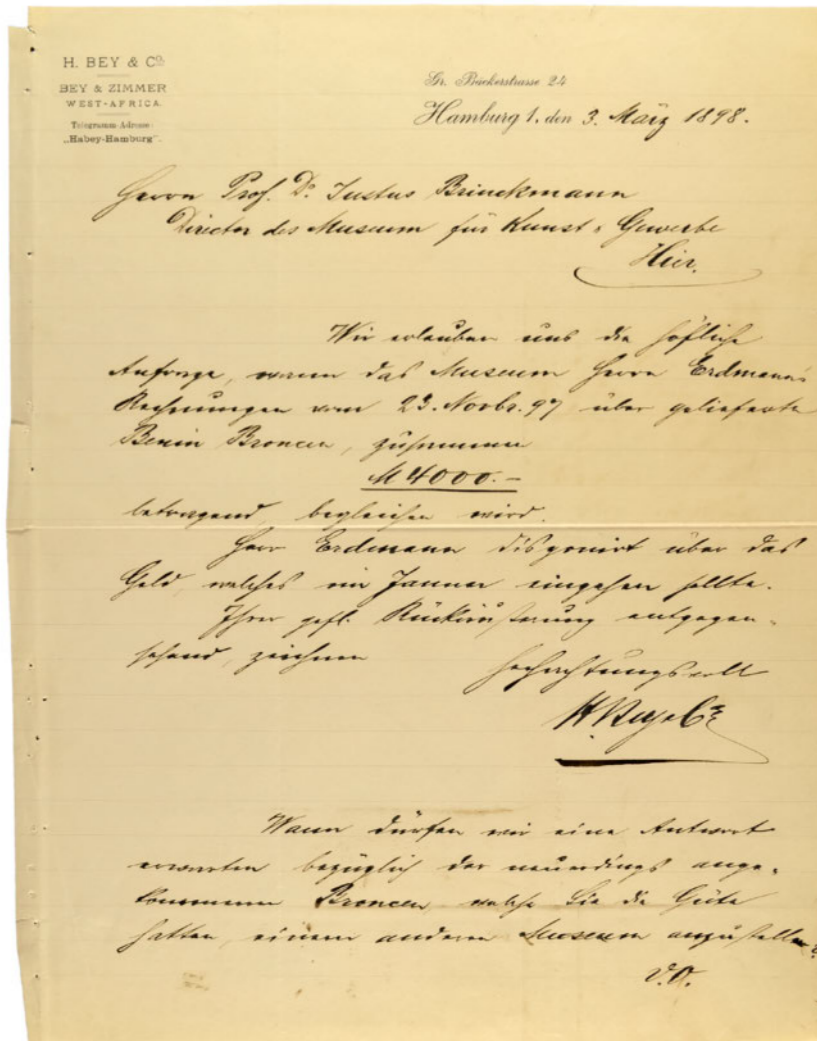 H. BEY & Co.
BEY & ZIMMER
WEST-AFRICA.
Telegramm-Adresse:
„Habey-Hamburg".
Gr. Bäckerstrasse 24
Hamburg 1, den 3. März 1898.
Herrn Prof. Dr. Justus Brinckmann
Director des Museum für Kunst & Gewerbe
Hier.
Wir erlauben uns die höfliche
Anfrage, wann das Museum Herrn Erdmann's
Rechnungen vom 23. Novbr. 97 über gelieferte
Benin Broncen, zusammen
M 4000.-
betragend, begleichen wird.
Herr Erdmann disponirt über das
Geld, welches im Januar eingehen sollte.
Ihrer gefl. Rückäusserung entgegen-
sehend, zeichnen
hochachtungsvoll
H. Bey & Co
Wann dürfen wir eine Antwort
erwarten bezüglich der neuerdings ange-
kommenen Broncen, welche Sie die Güte
hatten, einem anderen Museum anzustellen?
D.O.